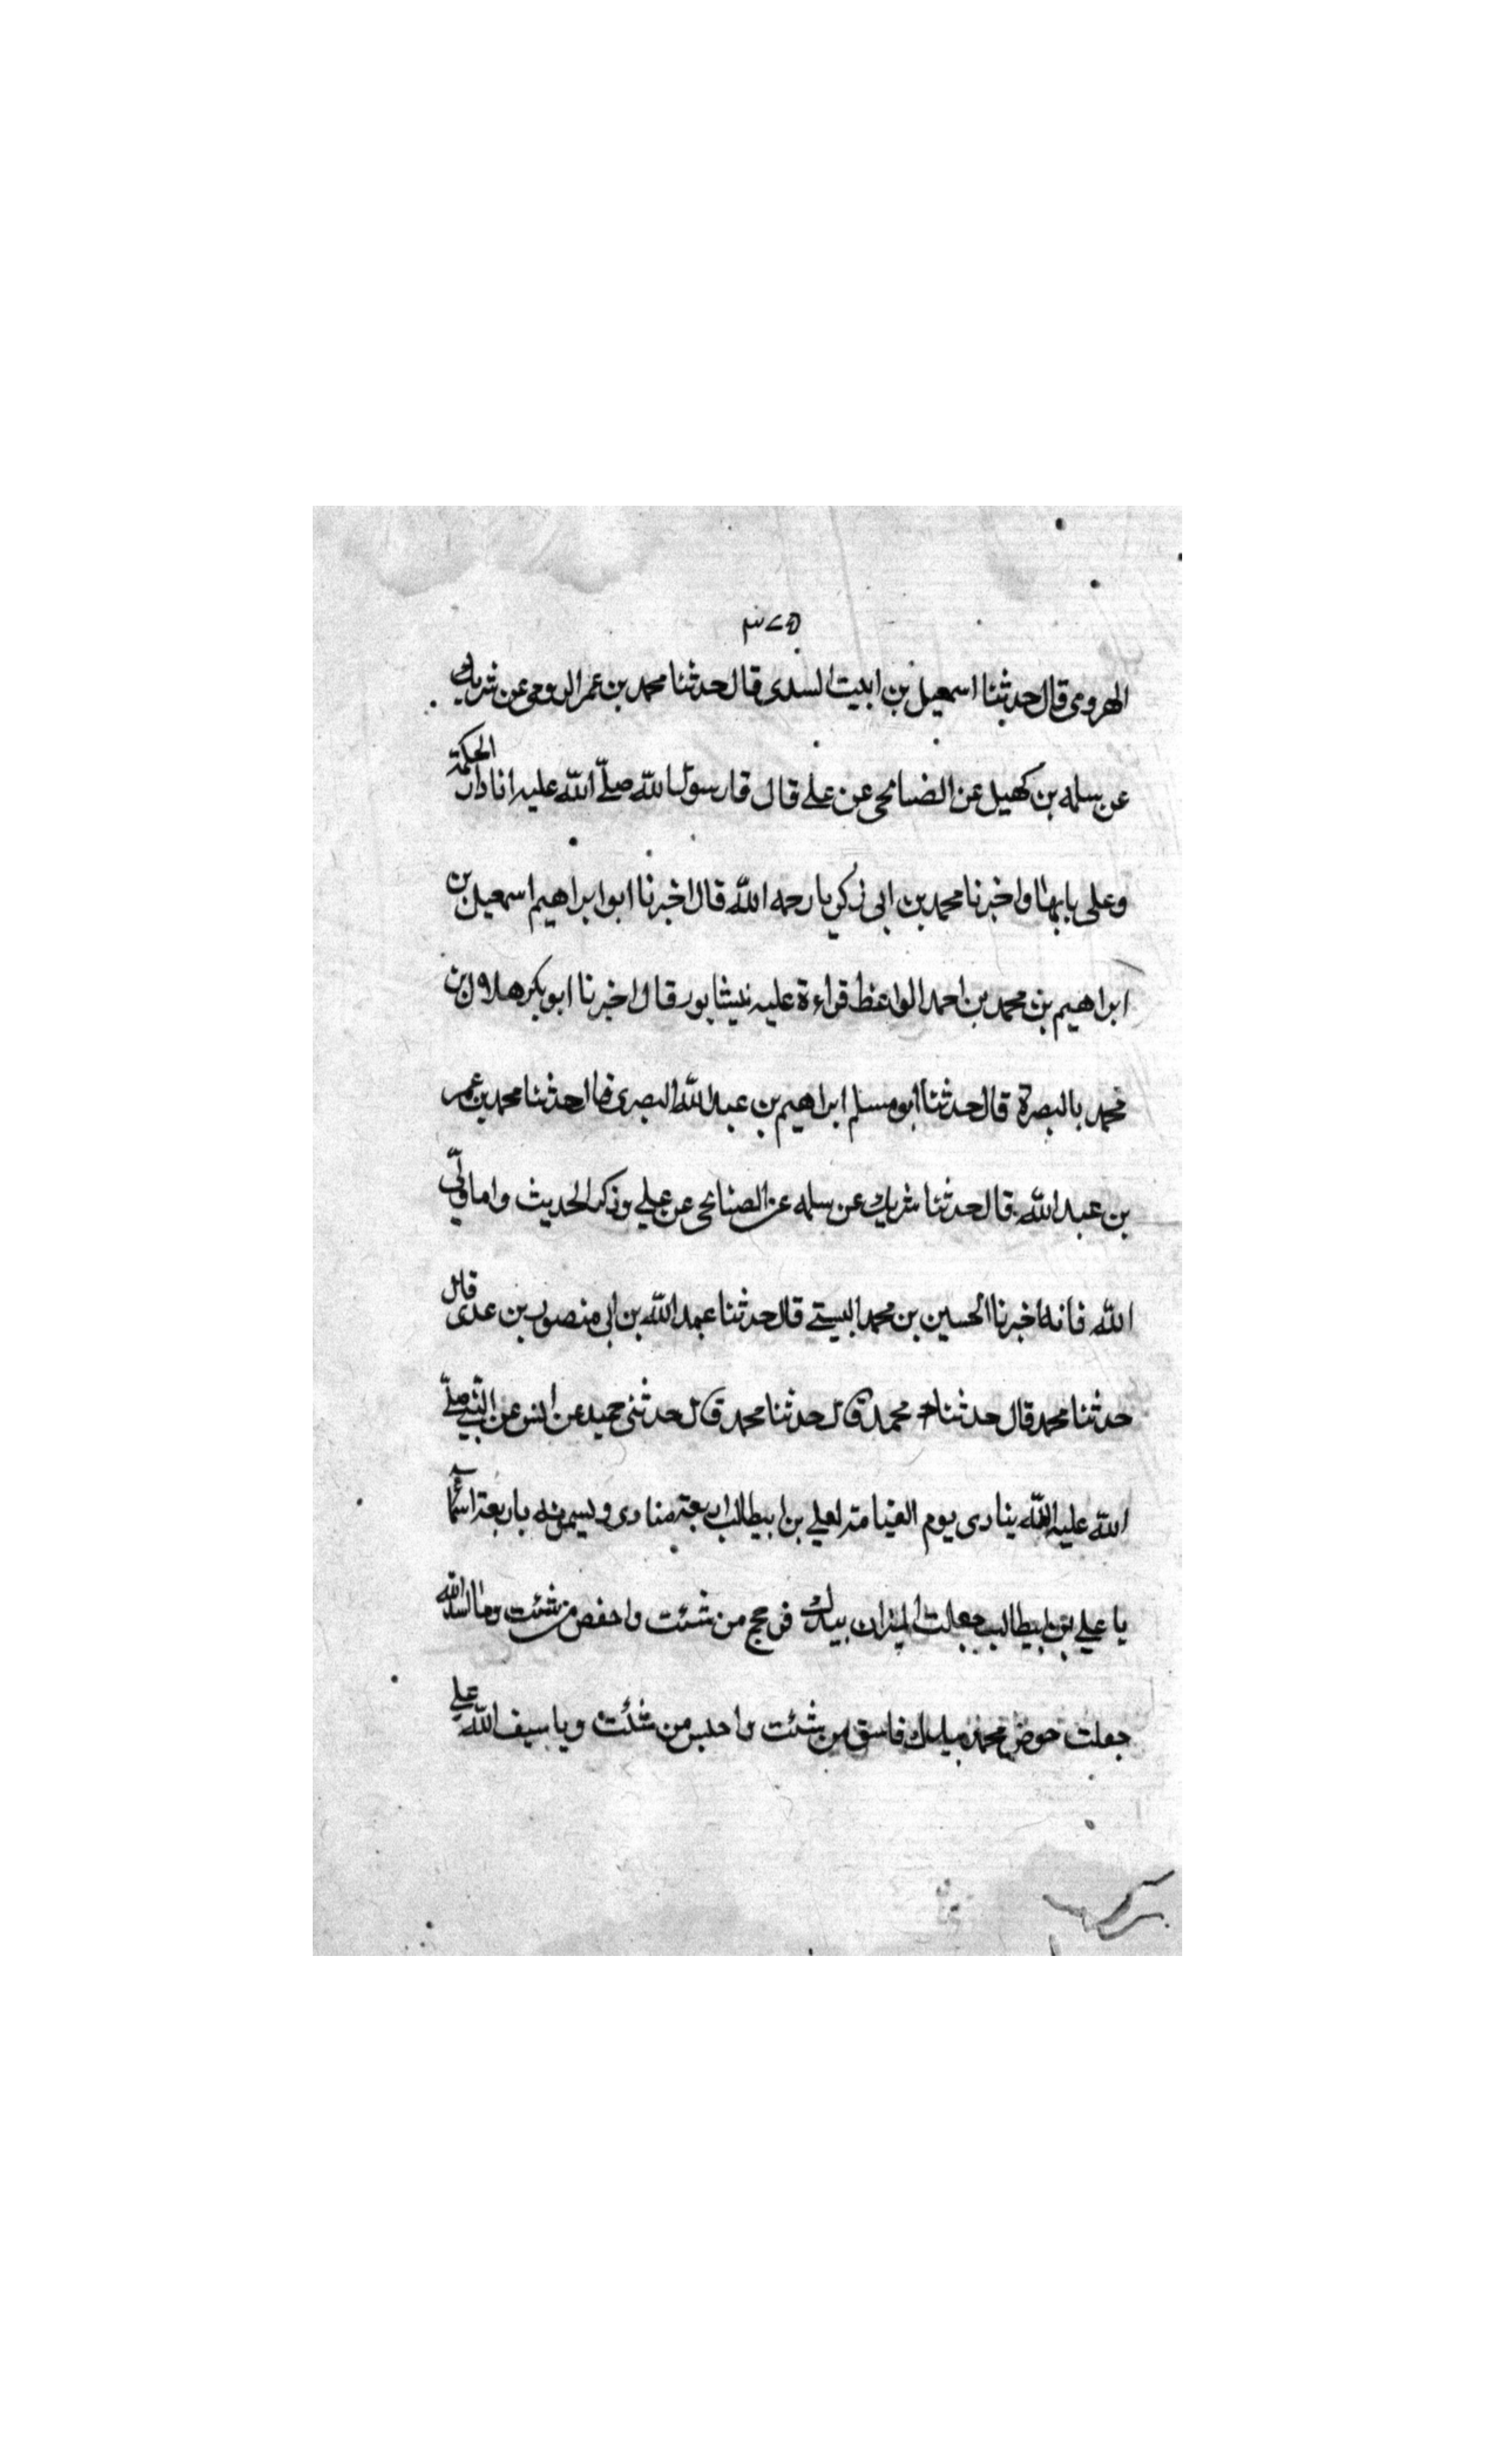 ٣٧٥
الهروى قال حدثنا اسمعيل بن ابنيت السدى قال حدثنا محمد بن عمر الرومى عن شريك
عن سلمه بن كهيل عن الضنابحى عن على قال قار سول الله صلّى الله عليه انا دار الحكمة
وعلى بابها واخبرنا محمد بن ابى زكريا رحمه الله قال اخبرنا ابوابراهيم اسمعيل بن
ابراهيم بن محمد بن احمد الواعظ قراءة عليه نيشابور قال اخبرنا ابوبكر هلال بن
محمد بالبصرة قال حدثنا ابومسلم ابراهيم بن عبدالله البصرى قال حدثنا محمد بن عمر
بن عبد الله قال حدثنا شريك عن سلمه عن الصنابحى عن على وذكر الحديث واما ولّى
الله فانه اخبرنا الحسين بن محمد البستى قال حدثنا عبد الله بن ابى منصور بن عدى قال
حدثنا محمد قال حدثنا محمد قال حدثنا محمد قال حدثنى حميد عن انس عن النّبى صلّى
الله عليه ينادى يوم القيامة لعلى بن ابيطالب اربعة منادى ويسمونه باربعة اسمآء
يا على بن ابيطالب جعلت الميزان بيدك فرجح من شئت واخفص من شئت ويا اسد الله
جعلت حوض محمد بيدك فاسق من شئت واحبس من شئت ويا سيف الله على